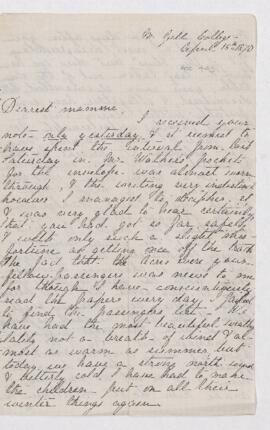 Mt Zell College
April 15th 1878
Dearest mamma,
I received your
note only yesterday, & it seemed to
have spent the interval from last
Saturday in Mr Walkers pocket
for the envelope was almost worn
through, & the writing very indistinct
however I managed to decipher it
& was very glad to hear certainly
that you had got so far safely
with only such a slight
fortune as getting one off the
the were your
fellow passengers was news to me
for though I have conscientiously
read the papers every day I failed
to find the passengers list. We
have had the most beautiful weather
lately not a breath of wind & al-
most as warm as summer, but
today we have a strong north wind
& bitterly cold, I have had to make
the children put on all their
winter things again